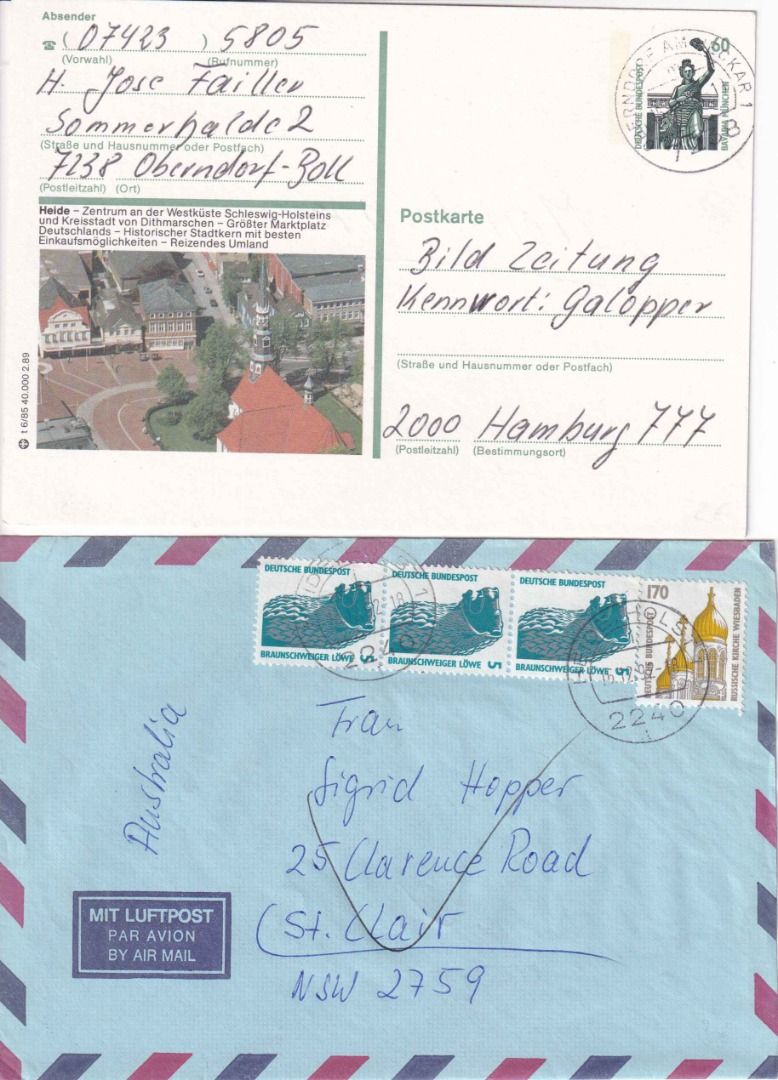 Absender
(07423) 5805
(Vorwahl) (Rufnummer)
H. Jose Failler
Sommerhalde 2
(Straße und Hausnummer oder Postfach)
7238 Oberndorf-Boll
(Postleitzahl) (Ort)
Heide – Zentrum an der Westküste Schleswig-Holsteins
und Kreisstadt von Dithmarschen – Größter Marktplatz
Deutschlands – Historischer Stadtkern mit besten
Einkaufsmöglichkeiten – Reizendes Umland
t 6/85 40.000 2.89
60
DEUTSCHE BUNDESPOST
BAVARIA MÜNCHEN
AM NECKAR 1
Postkarte
Bild Zeitung
Kennwort: Galopper
(Straße und Hausnummer oder Postfach)
2000 Hamburg 777
(Postleitzahl) (Bestimmungsort)
DEUTSCHE BUNDESPOST
BRAUNSCHWEIGER LÖWE 5
DEUTSCHE BUNDESPOST
BRAUNSCHWEIGER LÖWE 5
DEUTSCHE BUNDESPOST
BRAUNSCHWEIGER LÖWE 5
170
DEUTSCHE BUNDESPOST
RUSSISCHE KIRCHE WIESBADEN
2240
2240
Frau
Sigrid Hopper
25 Clarence Road
St. Clair
NSW 2759
Australia
MIT LUFTPOST
PAR AVION
BY AIR MAIL